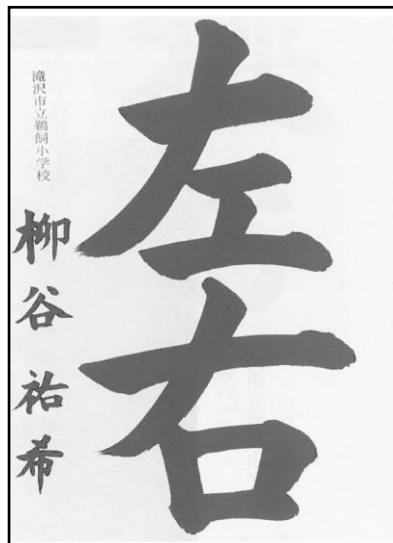 左右
滝沢市立鵜飼小学校
柳谷 祐希